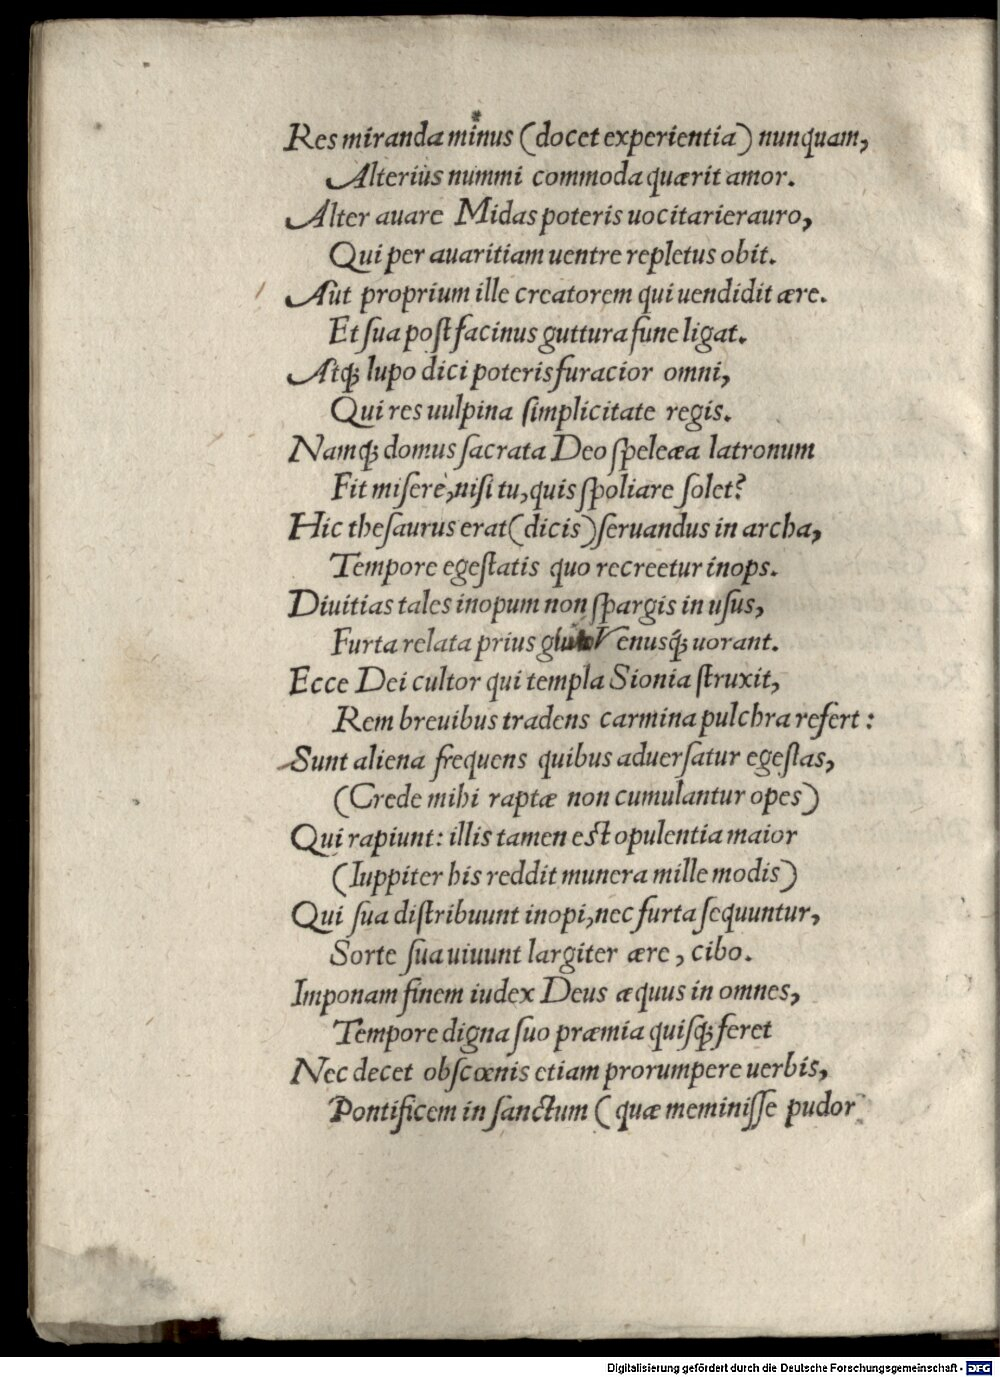 Res miranda minus (docet experientia) nunquam,
Alterius nummi commoda quærit amor.
Alter auare Midas poteris uocitarier auro,
Qui per auaritiam uentre repletus obit.
Aut proprium ille creatorem qui uendidit ære.
Et ſua poſt facinus guttura fune ligat.
Atq; lupo dici poteris furacior omni,
Qui res uulpina ſimplicitate regis.
Namq; domus ſacrata Deo ſpeleæa latronum
Fit miſerè, niſi tu, quis ſpoliare ſolet?
Hic theſaurus erat (dicis) ſeruandus in archa,
Tempore egeſtatis quo recreetur inops.
Diuitias tales inopum non ſpargis in uſus,
Furta relata prius Venusq; uorant.
Ecce Dei cultor qui templa Sionia ſtruxit,
Rem breuibus tradens carmina pulchra refert:
Sunt aliena frequens quibus aduerſatur egeſtas,
(Crede mihi raptæ non cumulantur opes)
Qui rapiunt: illis tamen eſt opulentia maior
(Iuppiter his reddit munera mille modis)
Qui ſua diſtribuunt inopi, nec furta ſequuntur,
Sorte ſua uiuunt largiter ære, cibo.
Imponam finem iudex Deus æquus in omnes,
Tempore digna ſuo præmia quiſq; feret
Nec decet obſcœnis etiam prorumpere uerbis,
Pontificem in ſanctum (quæ meminiſſe pudor
Digitalisierung gefördert durch die Deutsche Forschungsgemeinschaft - DFG